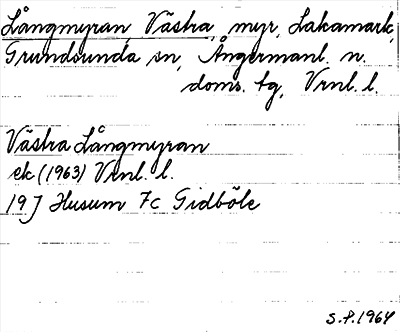 Långmyran, Västra, myr, Lakamark,
Grundsunda sn, Ångermanl. n.
doms. tg, Vrnl. l.
Västra Långmyran
ek (1963) Vrnl. l.
19 J Husum 7c Gidböle
S.P.1964